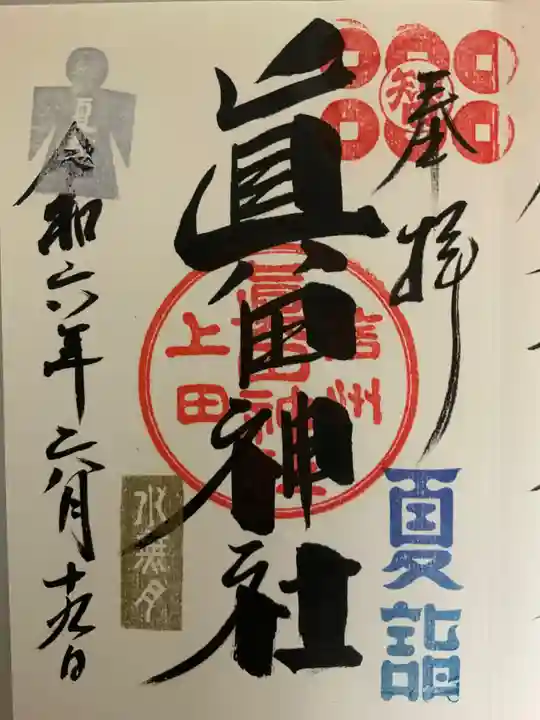 奉拝
智
夏詣
眞田神社
信州
眞田神社
上田
水無月
夏
令和六年六月十九日